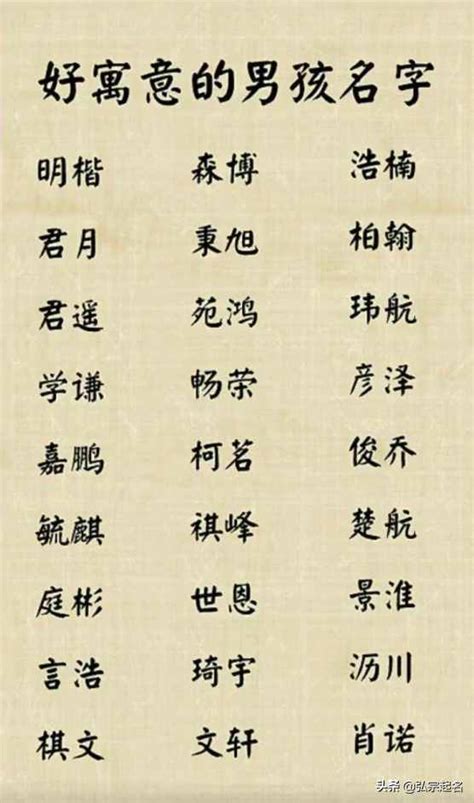 好寓意的男孩名字
明楷 森博 浩楠
君月 秉旭 柏翰
君遥 苑鸿 玮航
学谦 畅荣 彦泽
嘉鹏 柯茗 俊乔
毓麒 祺峰 楚航
庭彬 世恩 景淮
言浩 琦宇 沥川
棋文 文轩 肖诺
头条 @弘宗起名